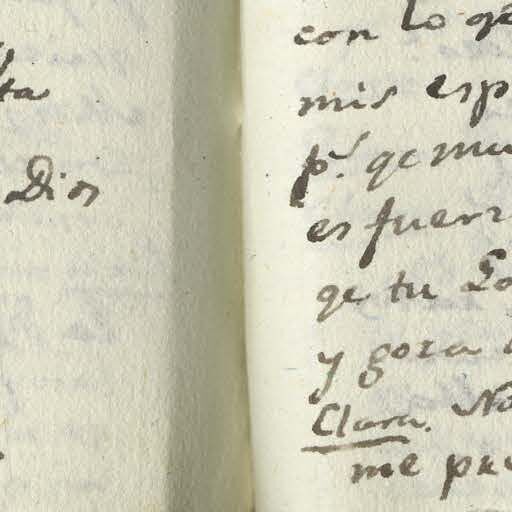 ta
Dios
con lo qe
mis esp
pr. qe mu
es fuerz
qe tu Lo
y goza
Clara. No
me pue